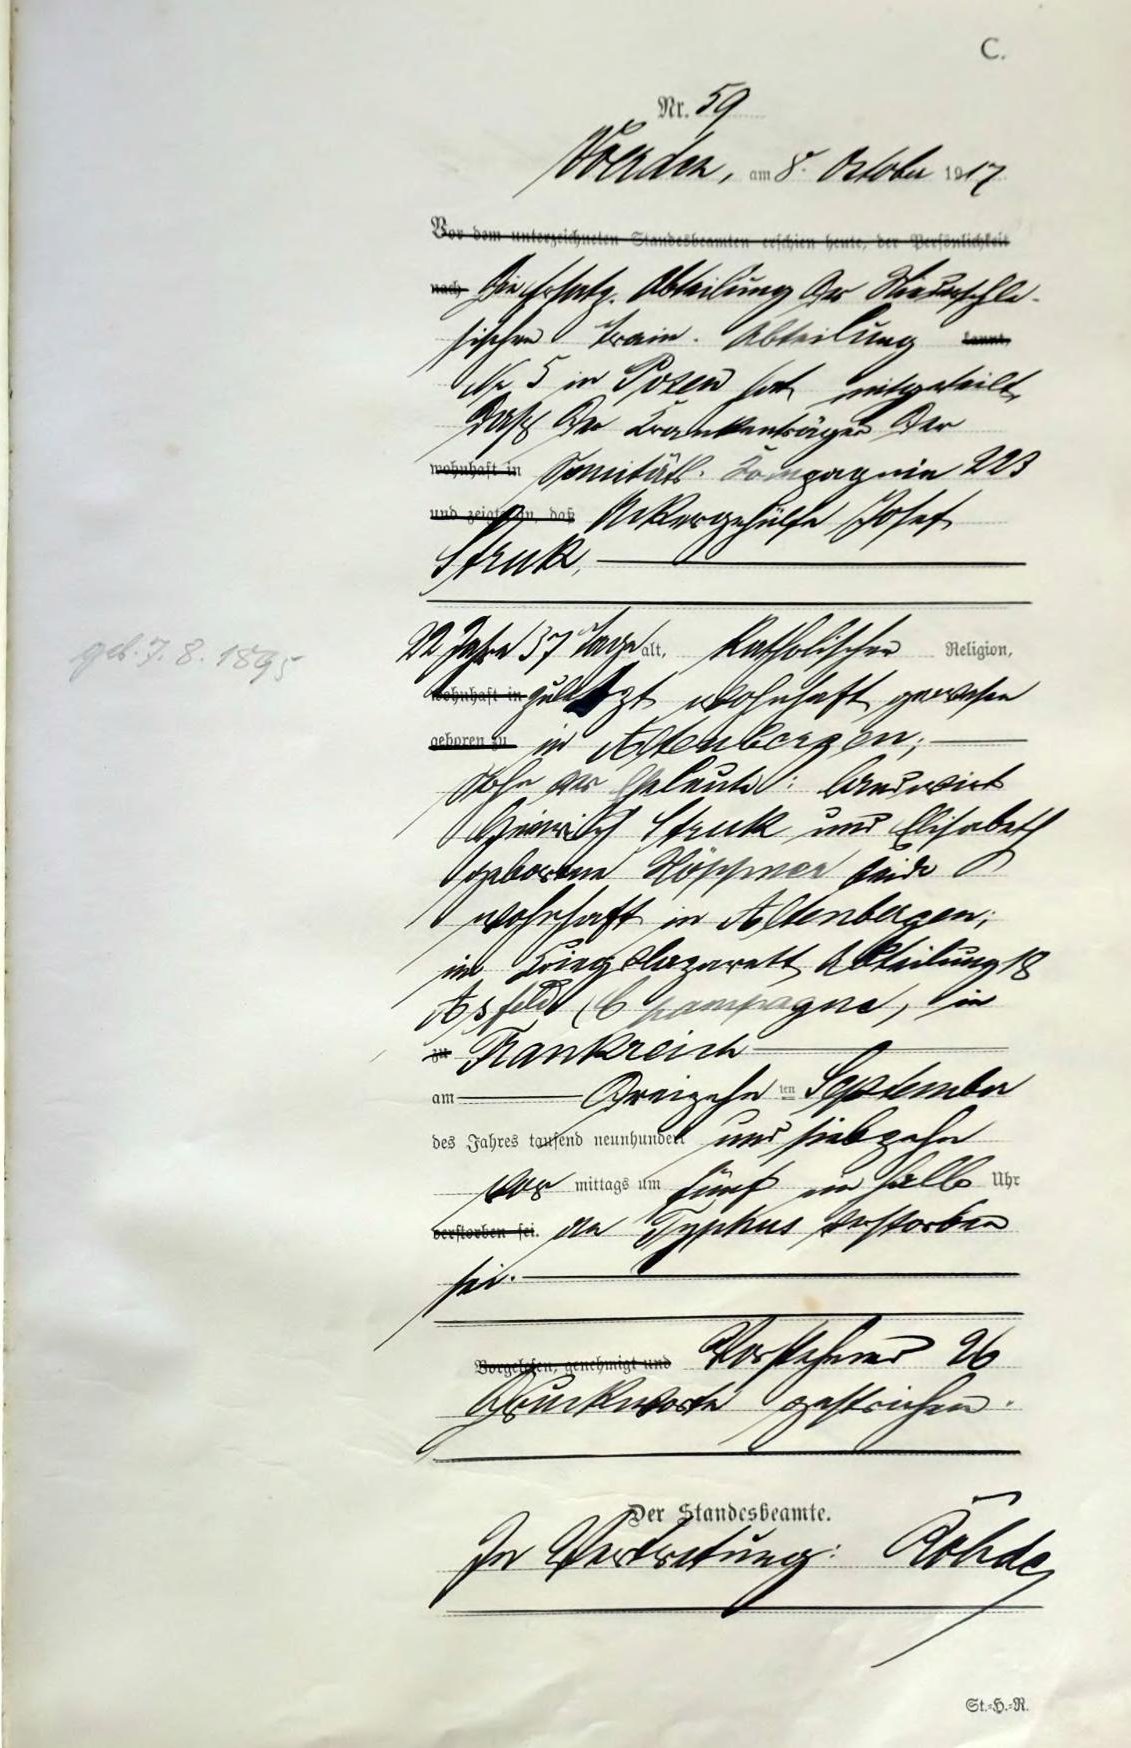 C.
Nr. 59
Voerden, am 8. October 1917
Vor dem unterzeichneten Standesbeamten erschien heute, der Persönlichkeit
nach Die Ersatz-Abteilung der Niederschle-
sischen Train-Abteilung kannt,
Nr 5 in Posen hat mitgeteilt,
daß der Krankenträger der
wohnhaft in Sanitäts-Kompagnie 223
und zeigte an, daß Ackergehülfe Josef
Struk,
22 Jahre 37 Tage alt, Katholischer Religion,
geb. 7.8.1895
wohnhaft in zuletzt wohnhaft gewesen
geboren zu in Altenbergen;
Sohn der Eheleute: Landwirt
Heinrich Struk und Elisabeth
geborene beide
wohnhaft in Altenbergen;
im Kriegslazarett Abteilung 18
Asfeld (Champagne, in
zu Frankreich
am Dreizehn ten September
des Jahres tausend neunhundert und siebzehn
vor mittags um fünf ein halb Uhr
verstorben sei. an Typhus verstorben
sei.
Vorgelesen, genehmigt und Vorstehend 26
Druckworte gestrichen.
Der Standesbeamte.
In Vertretung:
St.=H.=R.